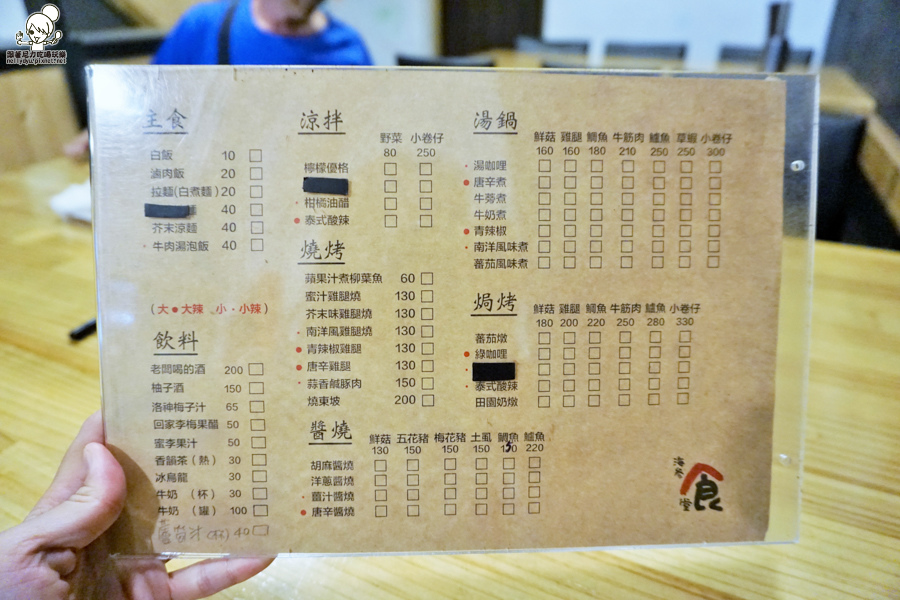 主食
白飯 10
滷肉飯 20
拉麵(白煮麵) 20
40
芥末涼麵 40
牛肉湯泡飯 40
(大●大辣 小·小辣)
飲料
老闆喝的酒 200
柚子酒 150
洛神梅子汁 65
回家李梅果醋 50
蜜李果汁 50
香韻茶(熱) 30
冰烏龍 30
牛奶 (杯) 30
牛奶 (罐) 100
汁(杯) 40
涼拌
野菜 小卷仔
80 250
檸檬優格
柑橘油醋
泰式酸辣
燒烤
蘋果汁煮柳葉魚 60
蜜汁雞腿燒 130
芥末味雞腿燒 130
南洋風雞腿燒 130
青辣椒雞腿 130
唐辛雞腿 130
蒜香鹹豚肉 150
燒東坡 200
醬燒
鮮菇 五花豬 梅花豬 土虱 鯛魚 鱸魚
130 150 150 150 220
胡麻醬燒
洋蔥醬燒
薑汁醬燒
唐辛醬燒
湯鍋
鮮菇 雞腿 鯛魚 牛筋肉 鱸魚 草蝦 小卷仔
160 160 180 210 250 250 300
湯咖哩
唐辛煮
牛蒡煮
牛奶煮
青辣椒
南洋風味煮
蕃茄風味煮
焗烤
鮮菇 雞腿 鯛魚 牛筋肉 鱸魚 小卷仔
180 200 220 250 280 330
蕃茄燉
綠咖哩
泰式酸辣
田園奶燉
食
堂